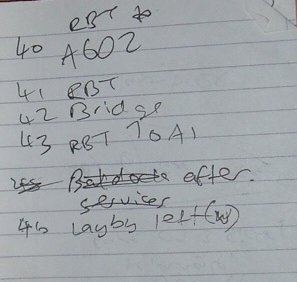 RBT to
40 A602
41 RBT
42 Bridge
43 RBT TO A1
after.
services
46 Layby left (W)